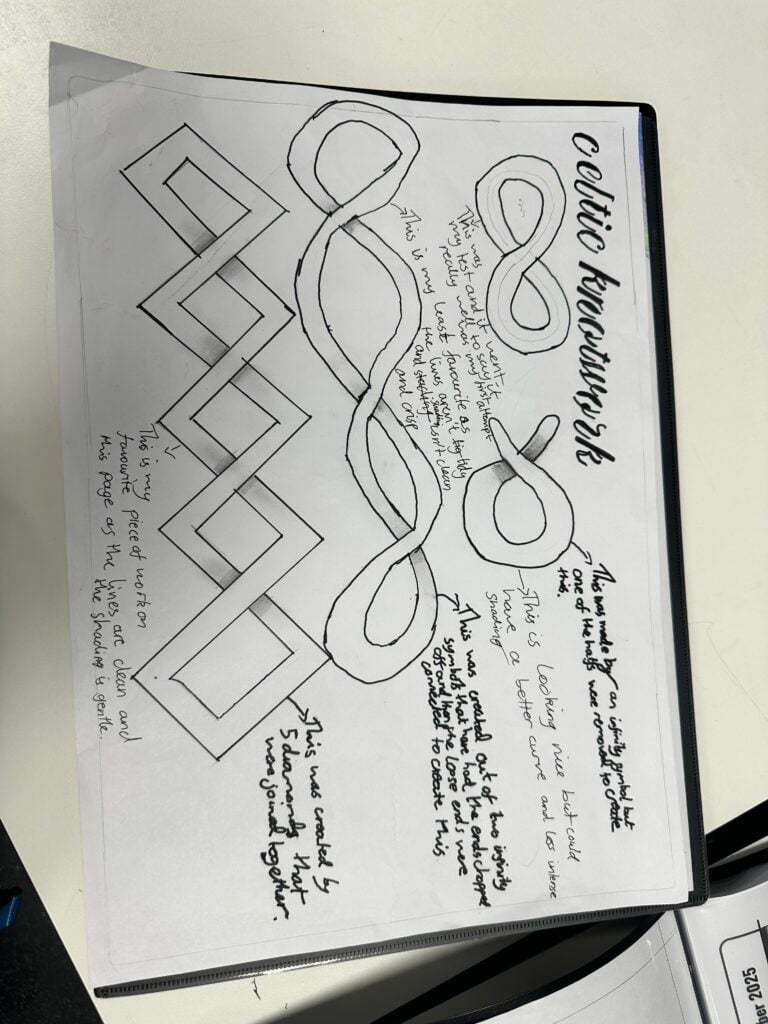 celtic knotwork
This was
my test and it went
really well to say it
was my first attempt
This was made by an infinity symbol but
one of the halfs were removed to create
this.
This is looking nice but could
have a better curve and less intense
shading
This is my least favourite as
the lines aren't tidy
and shading isn't clean
and crisp
This was created out of two infinity
symbols that have had the ends chopped
off and then the loose ends were
connected to create this
This was created by
5 diamonds that
were joined together.
This is my
favourite piece of work on
this page as the lines are clean and
the shading is gentle.
ber 2025